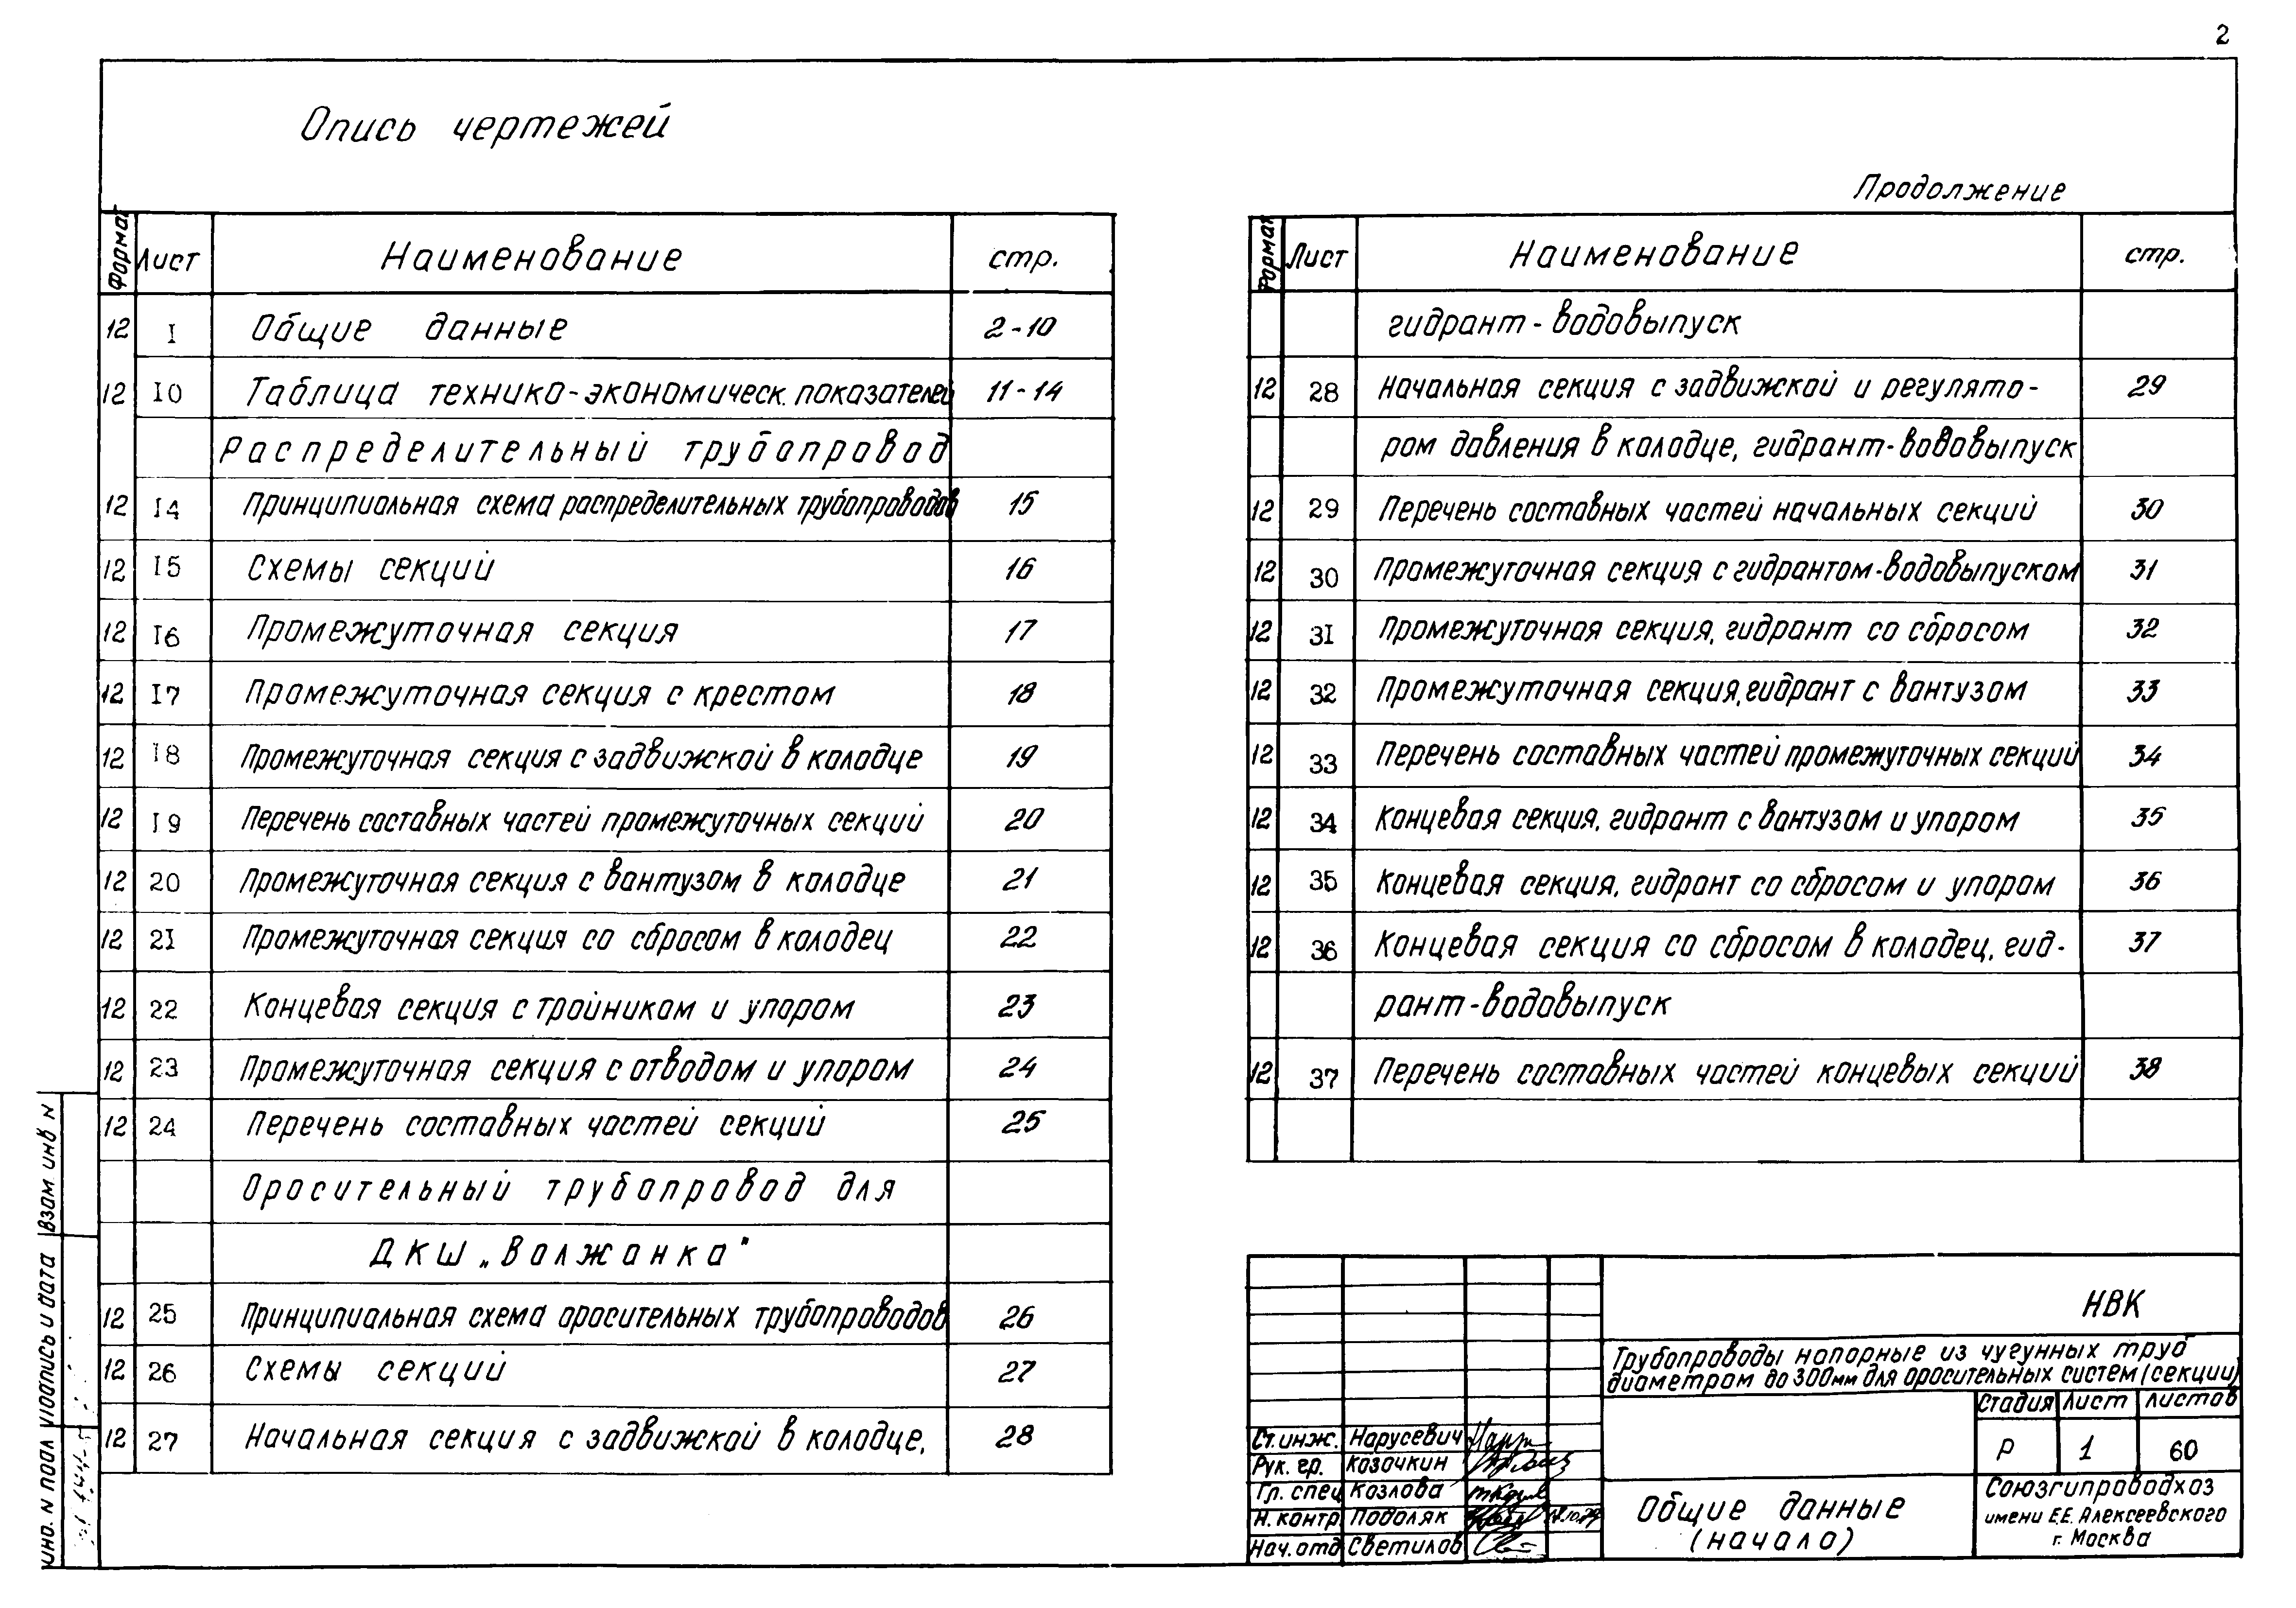 2
Опись чертежей
Формат Лист Наименование стр.
12 1 Общие данные 2-10
12 10 Таблица технико-экономическ. показателей 11-14
Распределительный трубопровод
12 14 Принципиальная схема распределительных трубопроводов 15
12 15 Схемы секций 16
12 16 Промежуточная секция 17
12 17 Промежуточная секция с крестом 18
12 18 Промежуточная секция с задвижкой в колодце 19
12 19 Перечень составных частей промежуточных секций 20
12 20 Промежуточная секция с вантузом в колодце 21
12 21 Промежуточная секция со сбросом в колодец 22
12 22 Концевая секция с тройником и упором 23
12 23 Промежуточная секция с отводом и упором 24
12 24 Перечень составных частей секций 25
Оросительный трубопровод для
ДКШ „Волжанка"
12 25 Принципиальная схема оросительных трубопроводов 26
12 26 Схемы секций 27
12 27 Начальная секция с задвижкой в колодце, 28
Продолжение
Формат Лист Наименование стр.
гидрант-водовыпуск
12 28 Начальная секция с задвижкой и регулято- 29
ром давления в колодце, гидрант-водовыпуск
12 29 Перечень составных частей начальных секций 30
12 30 Промежуточная секция с гидрантом-водовыпуском 31
12 31 Промежуточная секция, гидрант со сбросом 32
12 32 Промежуточная секция, гидрант с вантузом 33
12 33 Перечень составных частей промежуточных секций 34
12 34 Концевая секция, гидрант с вантузом и упором 35
12 35 Концевая секция, гидрант со сбросом и упором 36
12 36 Концевая секция со сбросом в колодец, гид- 37
рант-водовыпуск
12 37 Перечень составных частей концевых секций 38
НВК
Трубопроводы напорные из чугунных труб
диаметром до 300мм для оросительных систем (секции)
Стадия Лист Листов
Р 1 60
Ст. инж. Нарусевич
Рук. гр. Козочкин
Гл. спец Козлова
Н. контр Подоляк
Нач. отд Светилов
Общие данные
(начало)
Союзгипроводхоз
имени Е.Е. Алексеевского
г. Москва
Взам инв N
Подпись и дата
Инв. N подл